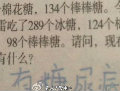 棉花糖，134个棒棒糖。
吃了289个冰糖，124个
98个棒棒糖。请问，现在
有什么？
有糖尿病